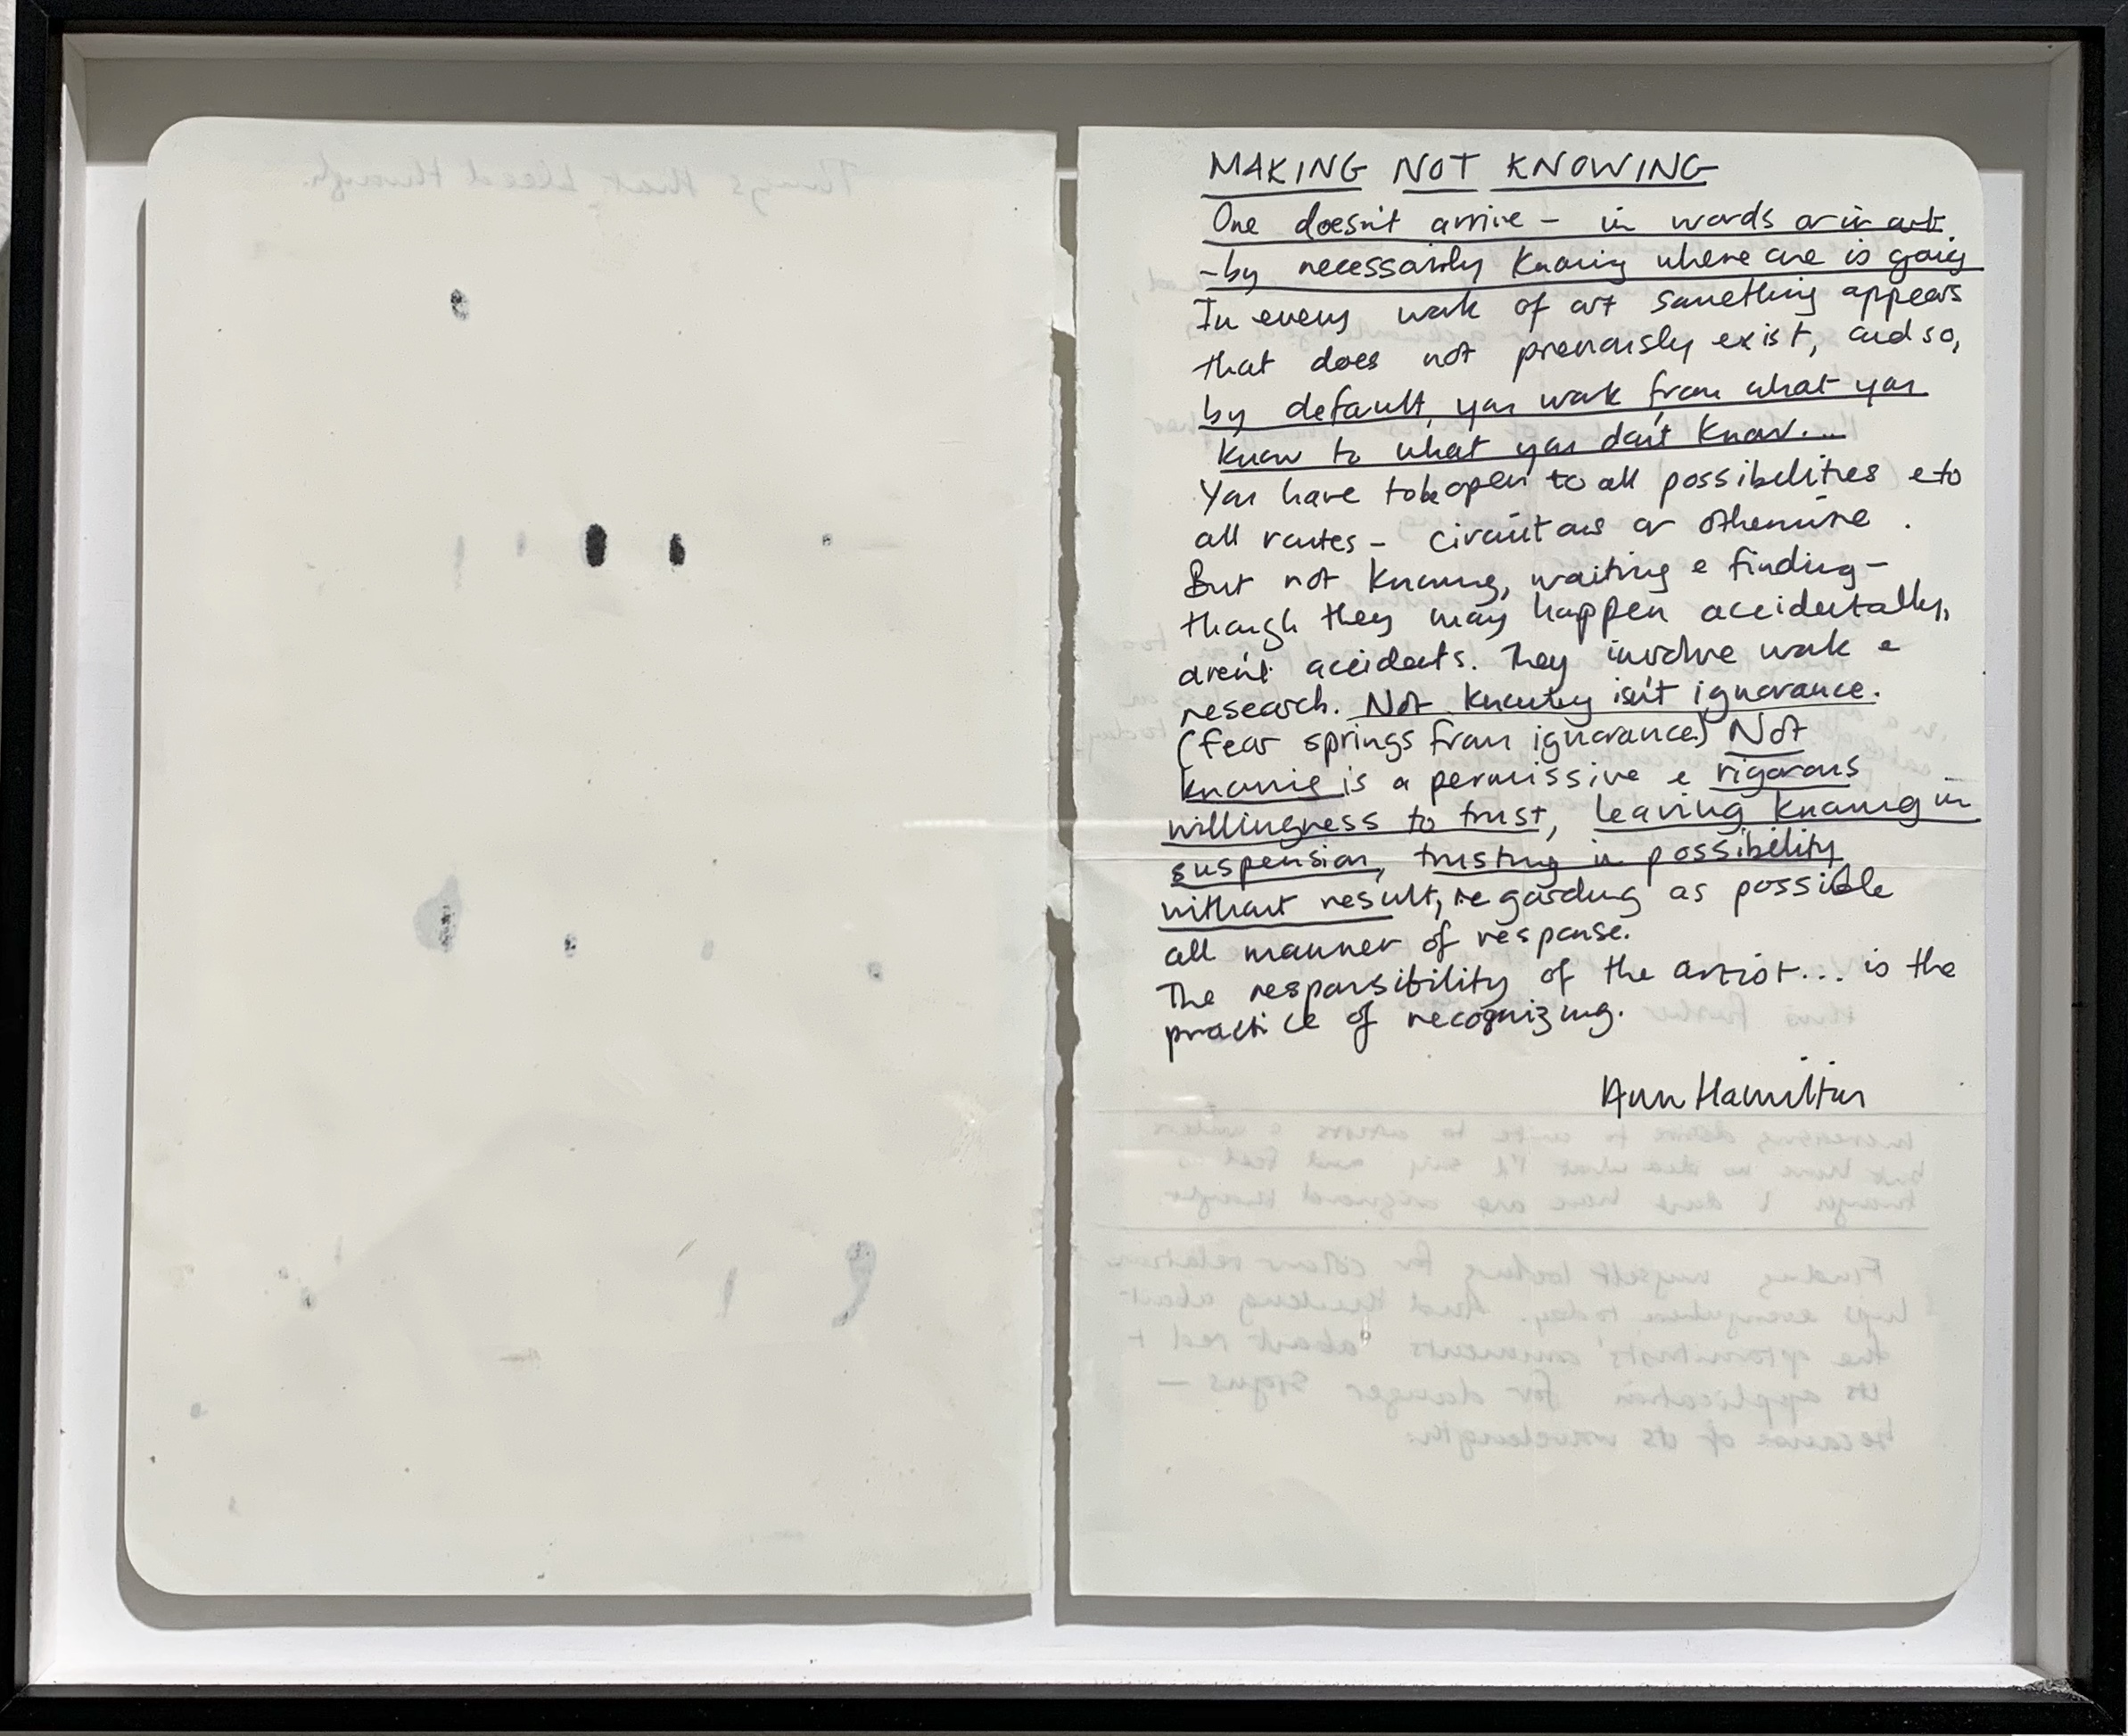 Things that bleed through.
MAKING NOT KNOWING
One doesn't arrive – in words or in art
– by necessarily knowing where one is going
In every work of art something appears
that does not previously exist, and so,
by default, you work from what you
know to what you don't know....
You have to be open to all possibilities e to
all routes – circuitous or otherwise.
But not knowing, waiting e finding –
though they may happen accidentally,
aren't accidents. They involve work e
research. Not knowing isn't ignorance.
(fear springs from ignorance) Not
knowing is a permissive e rigorous
willingness to trust, leaving knowing in
suspension, trusting in possibility
without result, regarding as possible
all manner of response.
The responsibility of the artist... is the
practice of recognizing.
Ann Hamilton
increasing desire to write to
but have no idea what I'd say and feel as
though I don't have one original thought
Finding myself looking for colour relation
ships everywhere today. And thinking about
the optomitrists' comments about red +
its application for danger signs —
because of its wavelength.